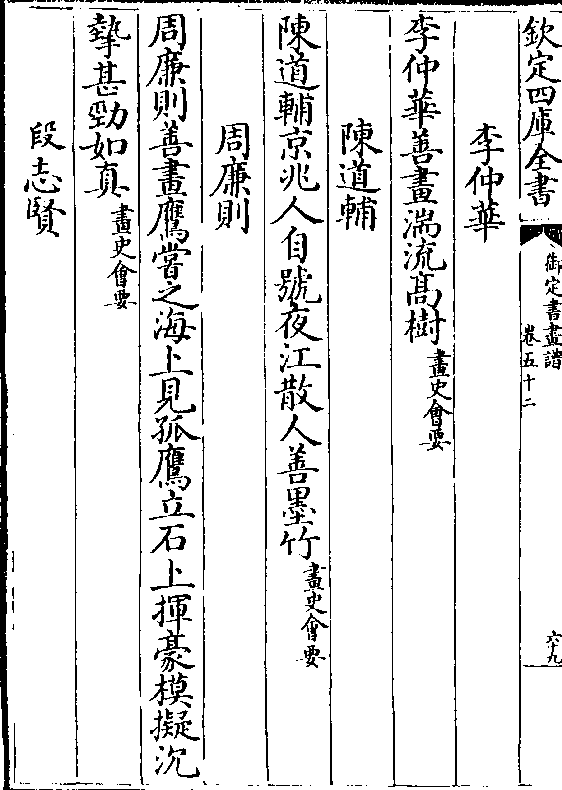 欽定四庫全書
御定書畫譜
卷五十二
六十九
李仲華
李仲華善畫湍流髙樹畫史會要
陳道輔
陳道輔京兆人自號夜江散人善墨竹畫史會要
周廉則
周廉則善畫鷹嘗之海上見孤鷹立石上揮豪模擬沉
摯甚勁如真畫史會要
段志賢